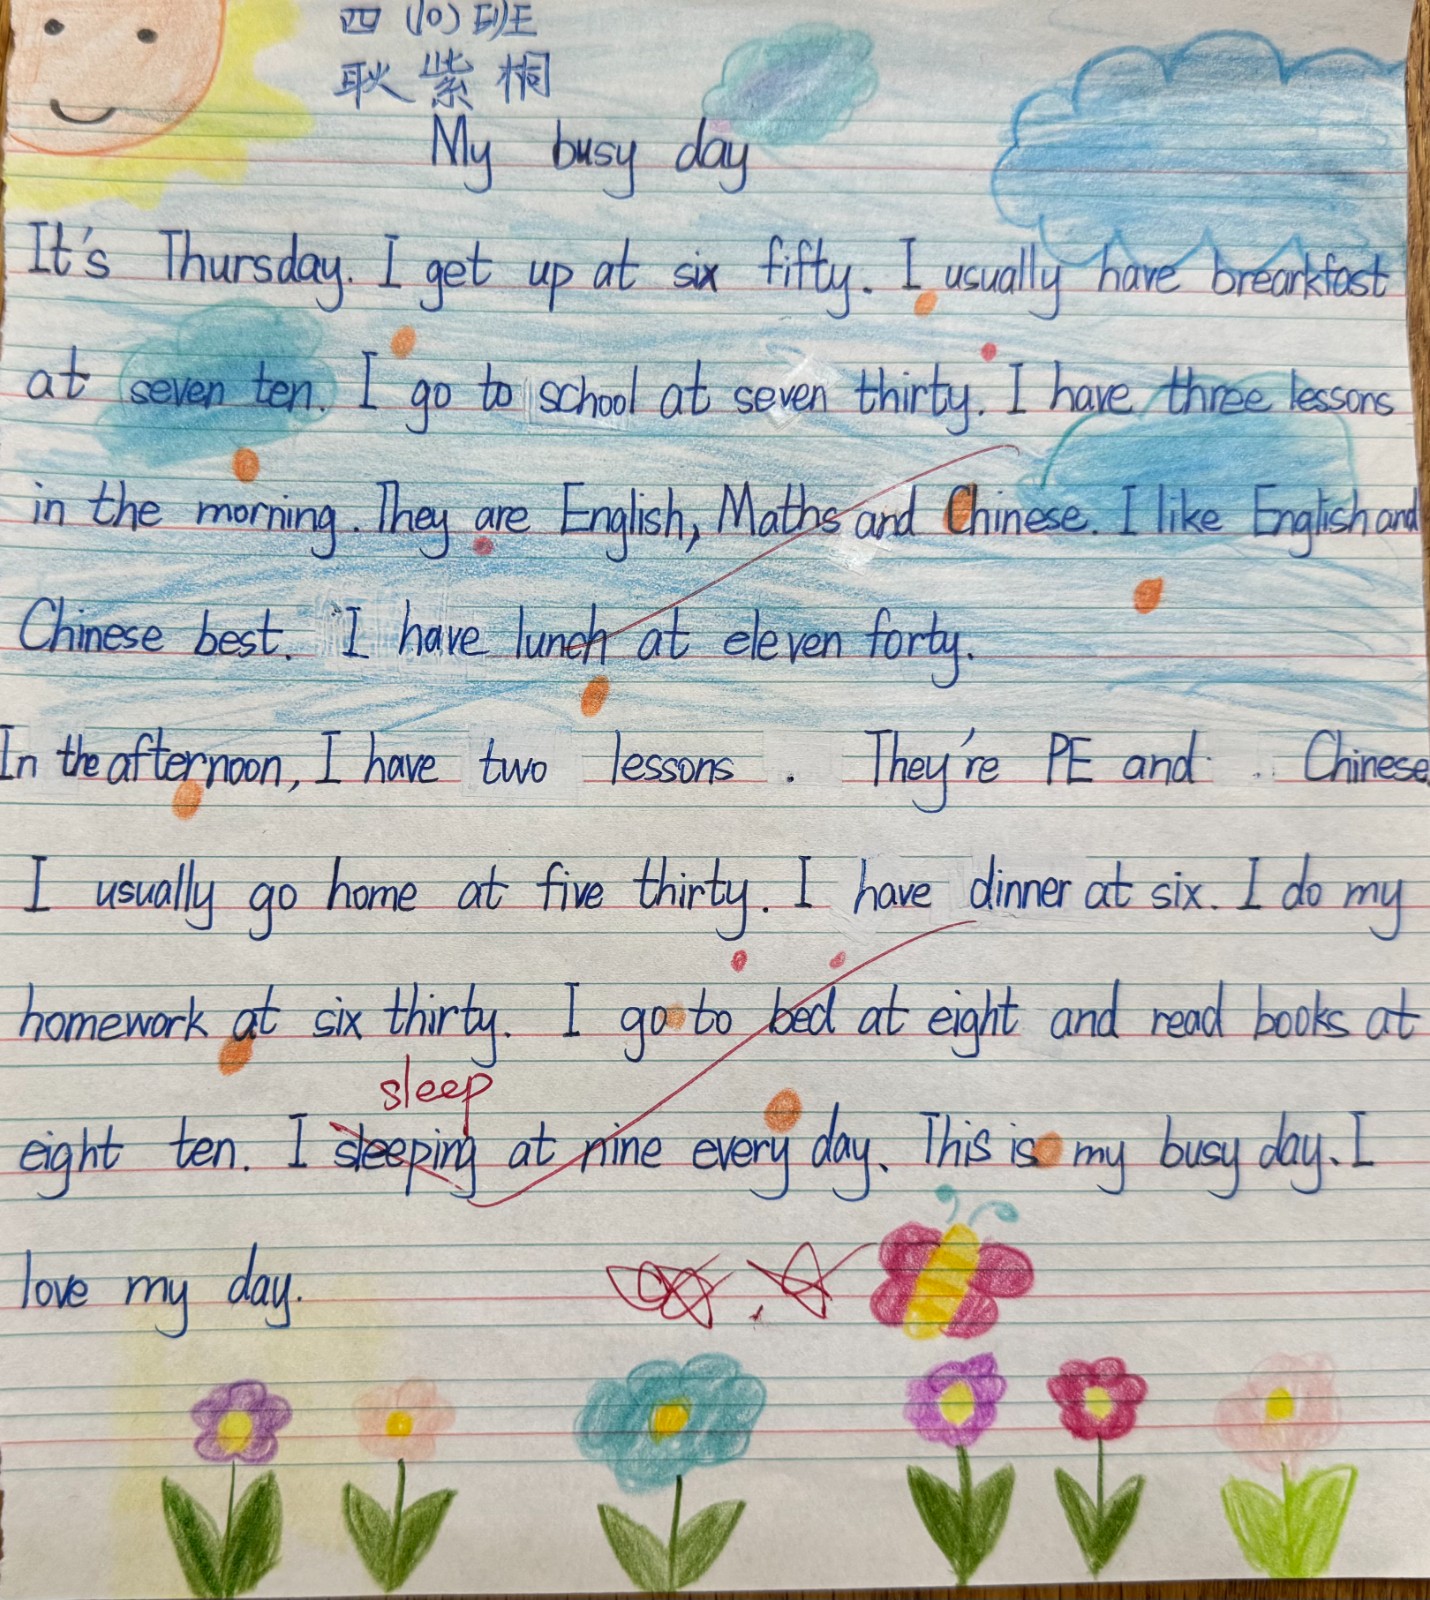 四(10)班
耿紫桐
My busy day
It's Thursday. I get up at six fifty. I usually have brearkfast
at seven ten. I go to school at seven thirty. I have three lessons
in the morning. They are English, Maths and Chinese. I like English and
Chinese best. I have lunch at eleven forty.
In the afternoon, I have two lessons. They're PE and Chinese
I usually go home at five thirty. I have dinner at six. I do my
homework at six thirty. I go to bed at eight and read books at
sleep
eight ten. I sleeping at nine every day. This is my busy day. I
love my day.